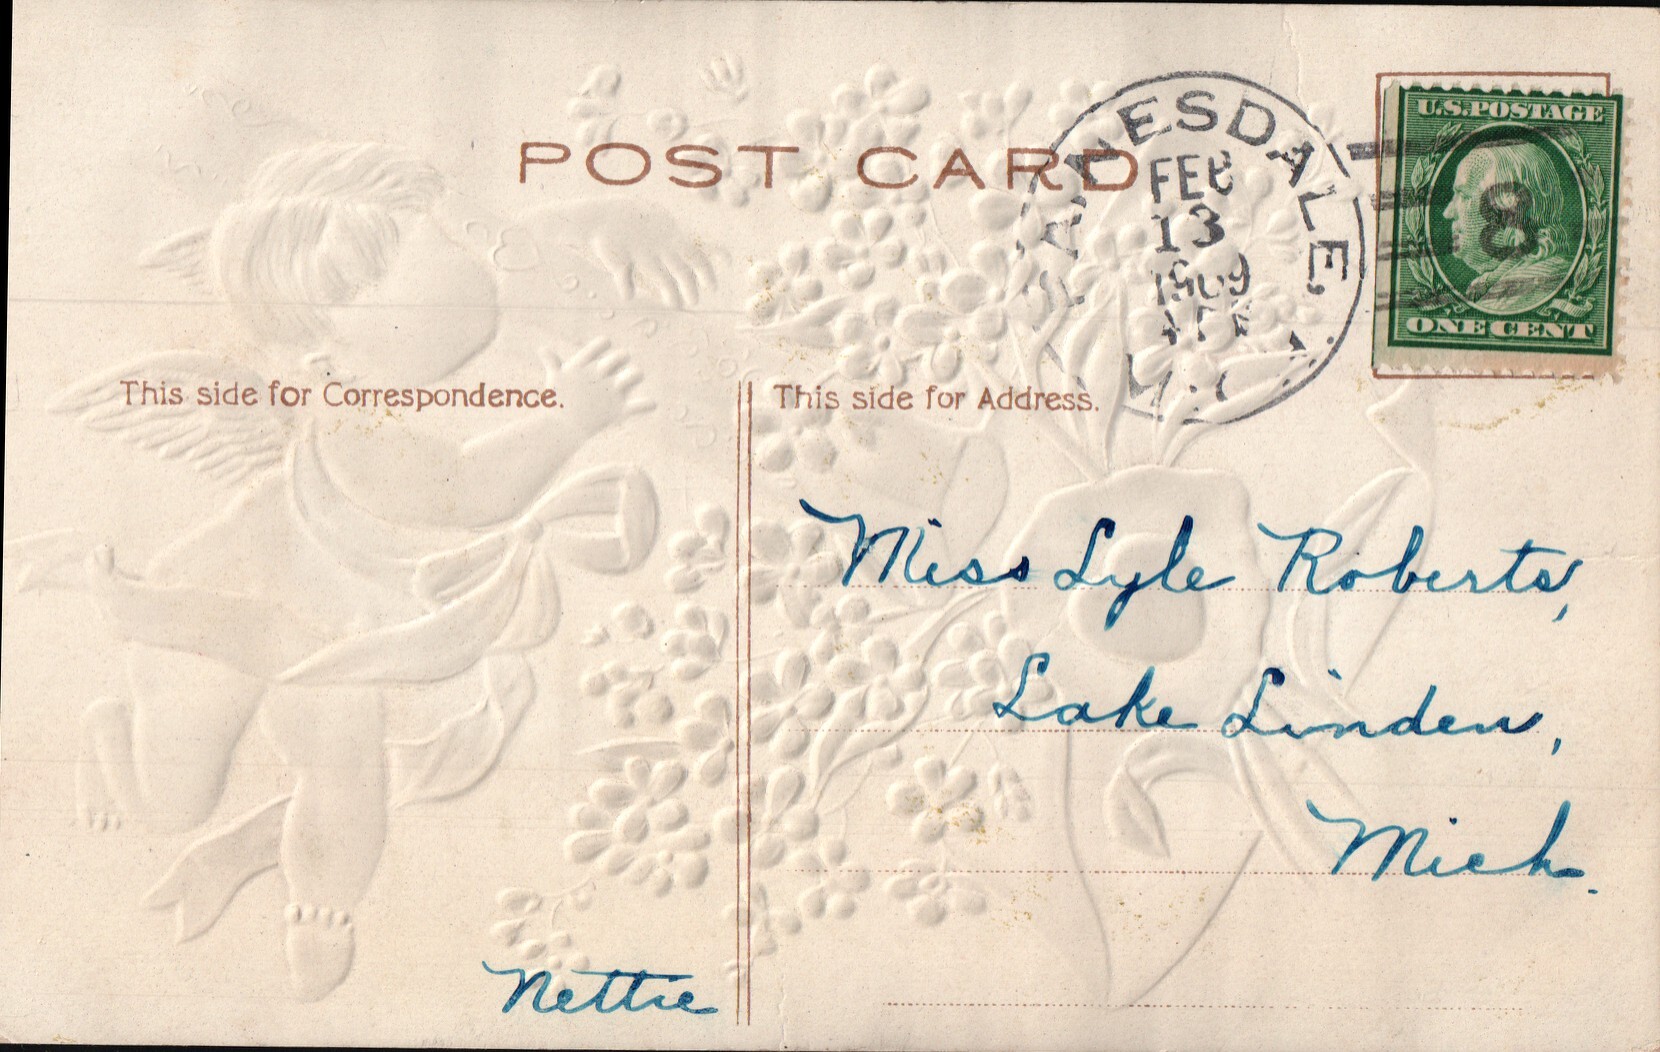 POST CARD
FEB
13
1909
U.S.POSTAGE
8
ONE CENT
This side for Correspondence.
This side for Address.
Miss Lyle Roberts,
Lake Linden,
Mich.
Nettie